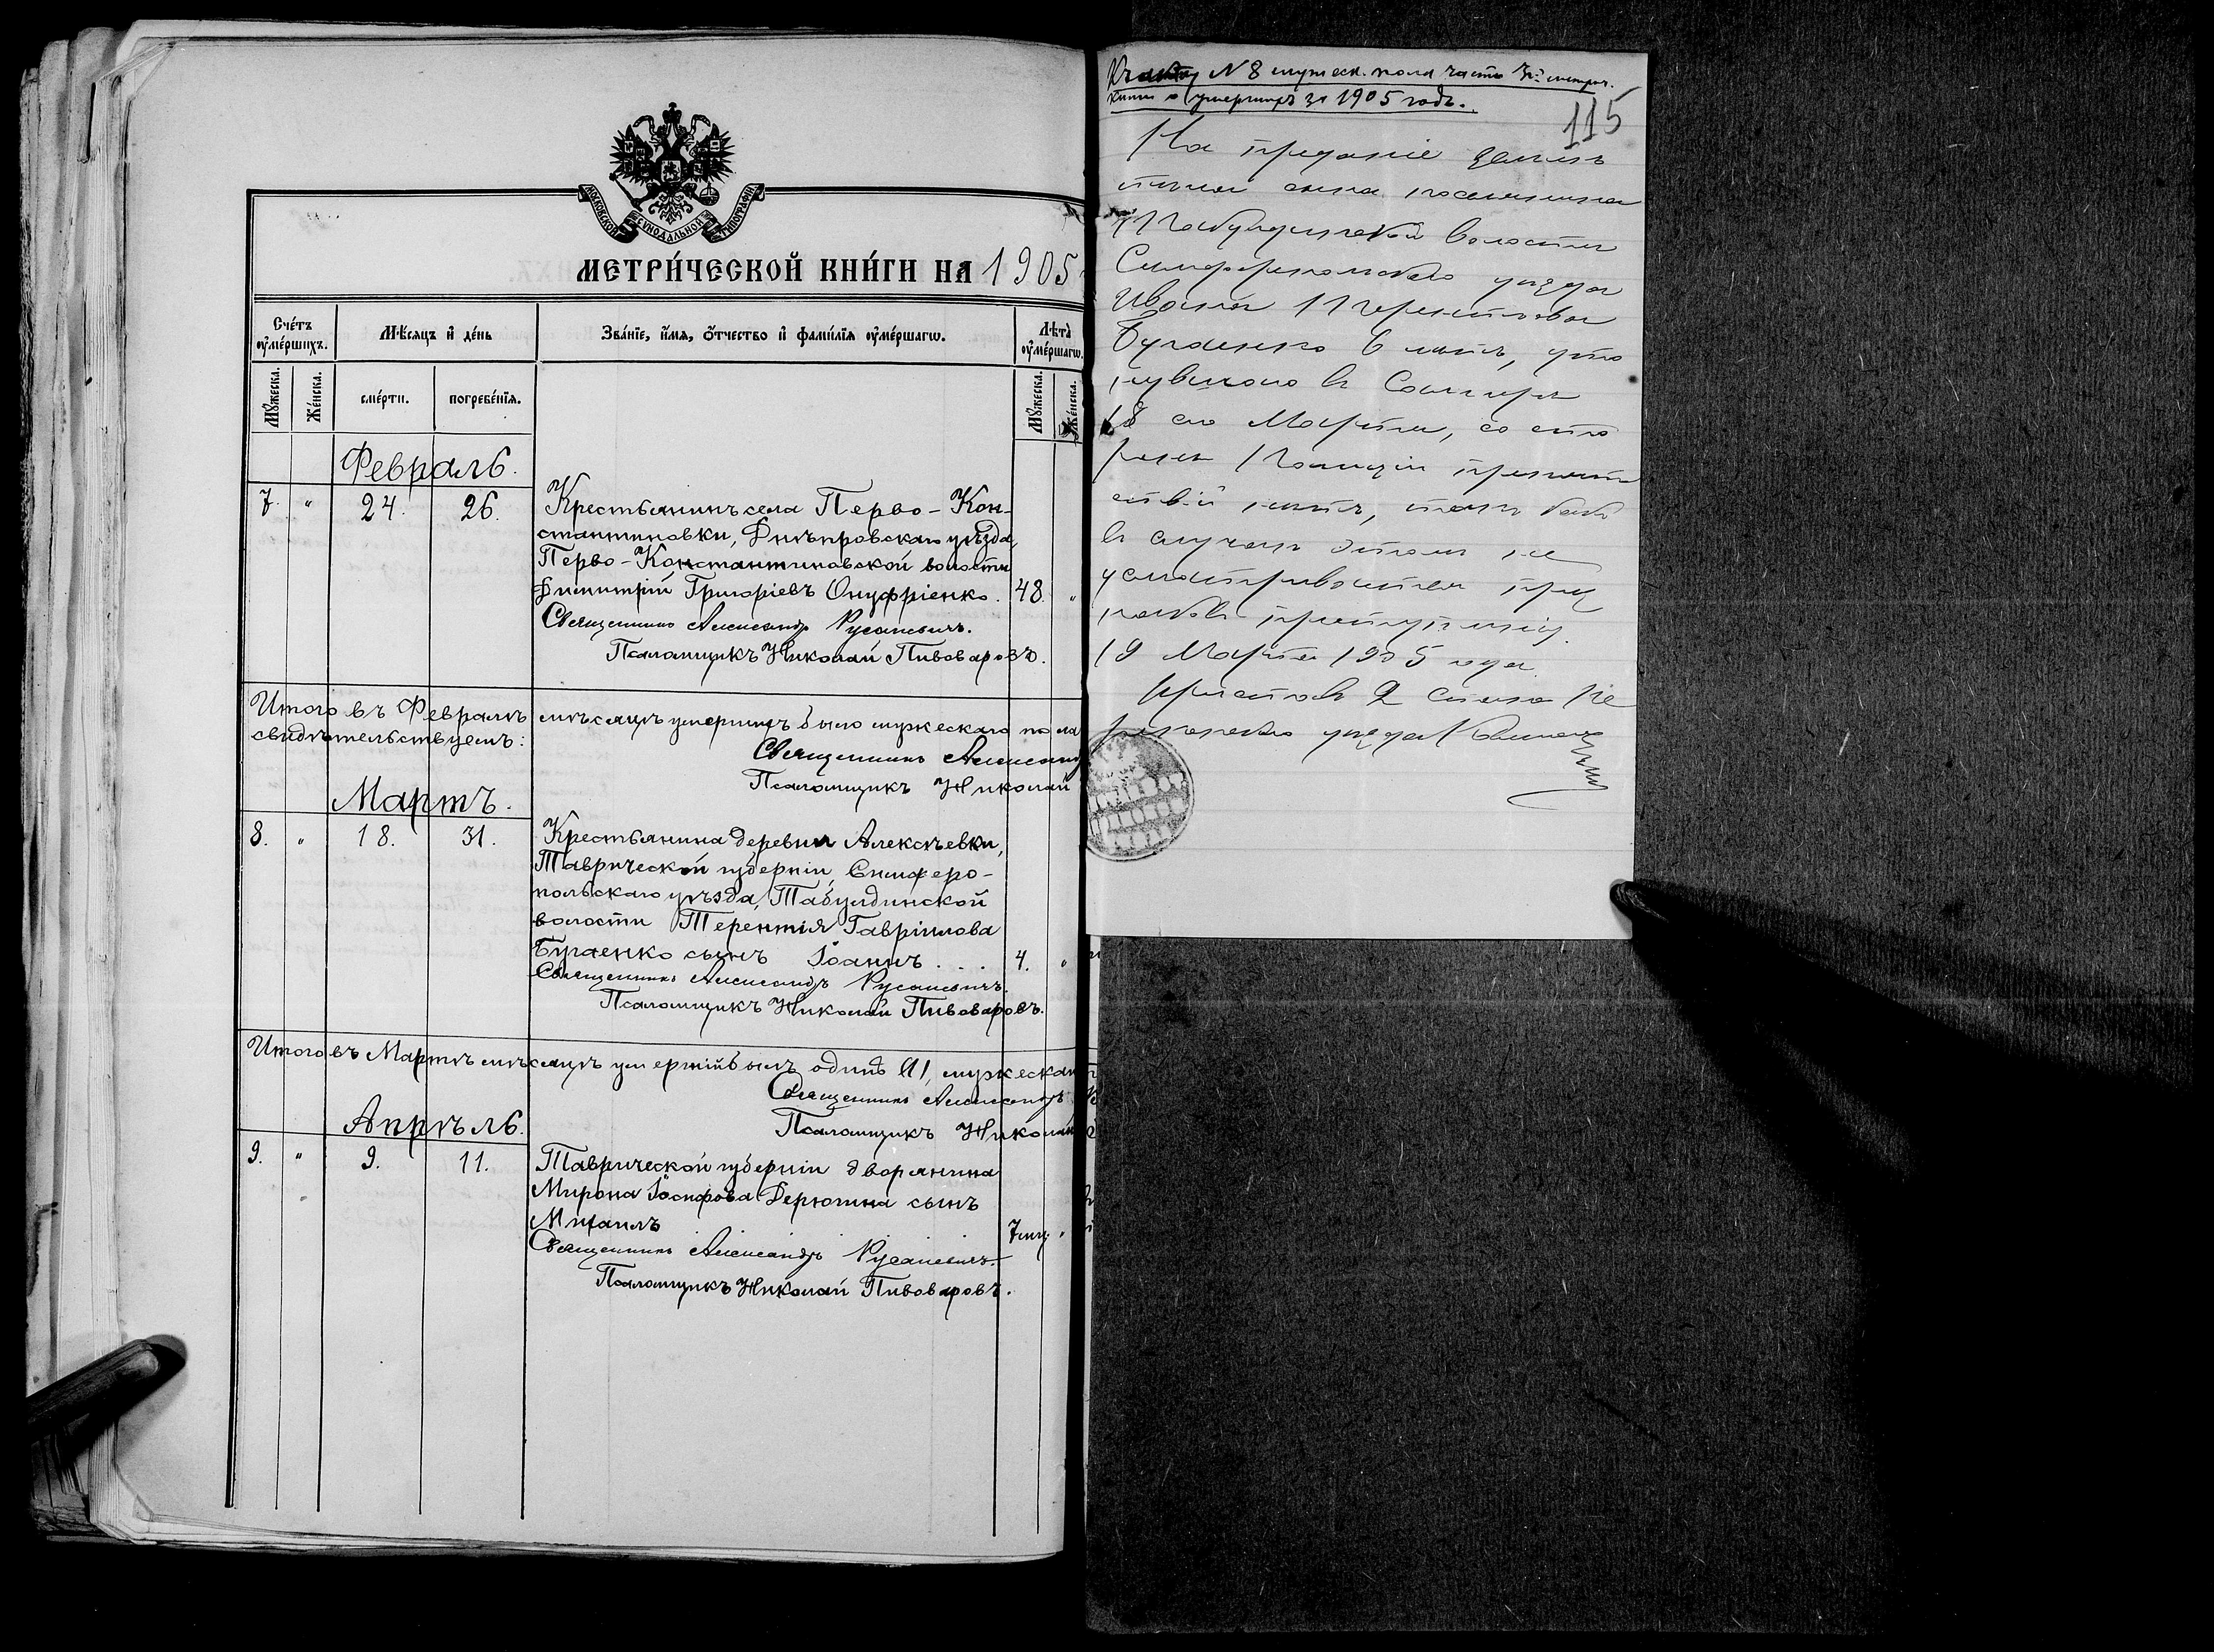 МОСКОВСКОЙ СѴНОДАЛЬНОЙ ТИПОГРАФІИ
МЕТРИ́ЧЕСКОЙ КНИ́ГИ НА 1905
Сче́тъ ᲂу҆ме́ршихъ.
Мѣ́сяцъ и҆ де́нь
Зва́нїе, и҆́мя, ѻ҆́тчество и҆ фами́лїѧ ᲂу҆ме́ршагѡ.
Лѣ́та ᲂу҆ме́ршагѡ.
Мꙋ́жеска.
Же́нска.
сме́рти.
погребе́нїѧ.
Мꙋ́жеска.
Же́нска.
Февраль.
7. " 24. 26. Крестьянинъ села Перво-Кон-
стантиновки, Днѣпровскаго уѣзда,
Перво-Константиновской волости
Димитрій Григоріевъ Онуфріенко. 48. "
Священникъ Александръ Русаневичъ.
Псаломщикъ Николай Пивоваровъ.
Итого въ Февралѣ мѣсяцѣ умершихъ было мужескаго пола
свидѣтельствуемъ:
Священникъ
Псаломщикъ Николай
Мартъ.
8. " 18. 31. Крестьянина деревни Алексѣевки,
Таврической губерніи, Симферо-
польскаго уѣзда, Табулдинской
волости Терентія Гавріилова
Бугаенко сынъ Іоаннъ . . . 4. "
Священникъ Александръ Русаневичъ.
Псаломщикъ Николай Пивоваровъ.
Итого въ Мартѣ мѣсяцѣ умершій былъ одинъ /1/, мужескаго
Священникъ Александръ
Псаломщикъ Николай
Апрѣль.
9. " 9. 11. Таврической губерніи дворянина
Мирона Іосифова Дерюгина сынъ
Михаилъ 7 мѣ. "
Священникъ Александръ Русаневичъ.
Псаломщикъ Николай Пивоваровъ.
Къ акту N 8 мужеск. пола часть 3й метрич.
книги о умершихъ за 1905 годъ.
115
На преданіе землѣ
тѣла сына поселянина
Табулдинской волости
Симферопольскаго уѣзда
Ивана Терентьева
Бугаенко 6 лѣтъ, уто
нувшаго въ
18 сего Марта, со сто
роны Полиціи препят
ствій нѣтъ, такъ какъ
въ случаѣ этомъ не
усматривается приз
наковъ преступленія.
19 Марта 1905 года
Приставъ 2 стана Пе
рекопскаго уѣзда